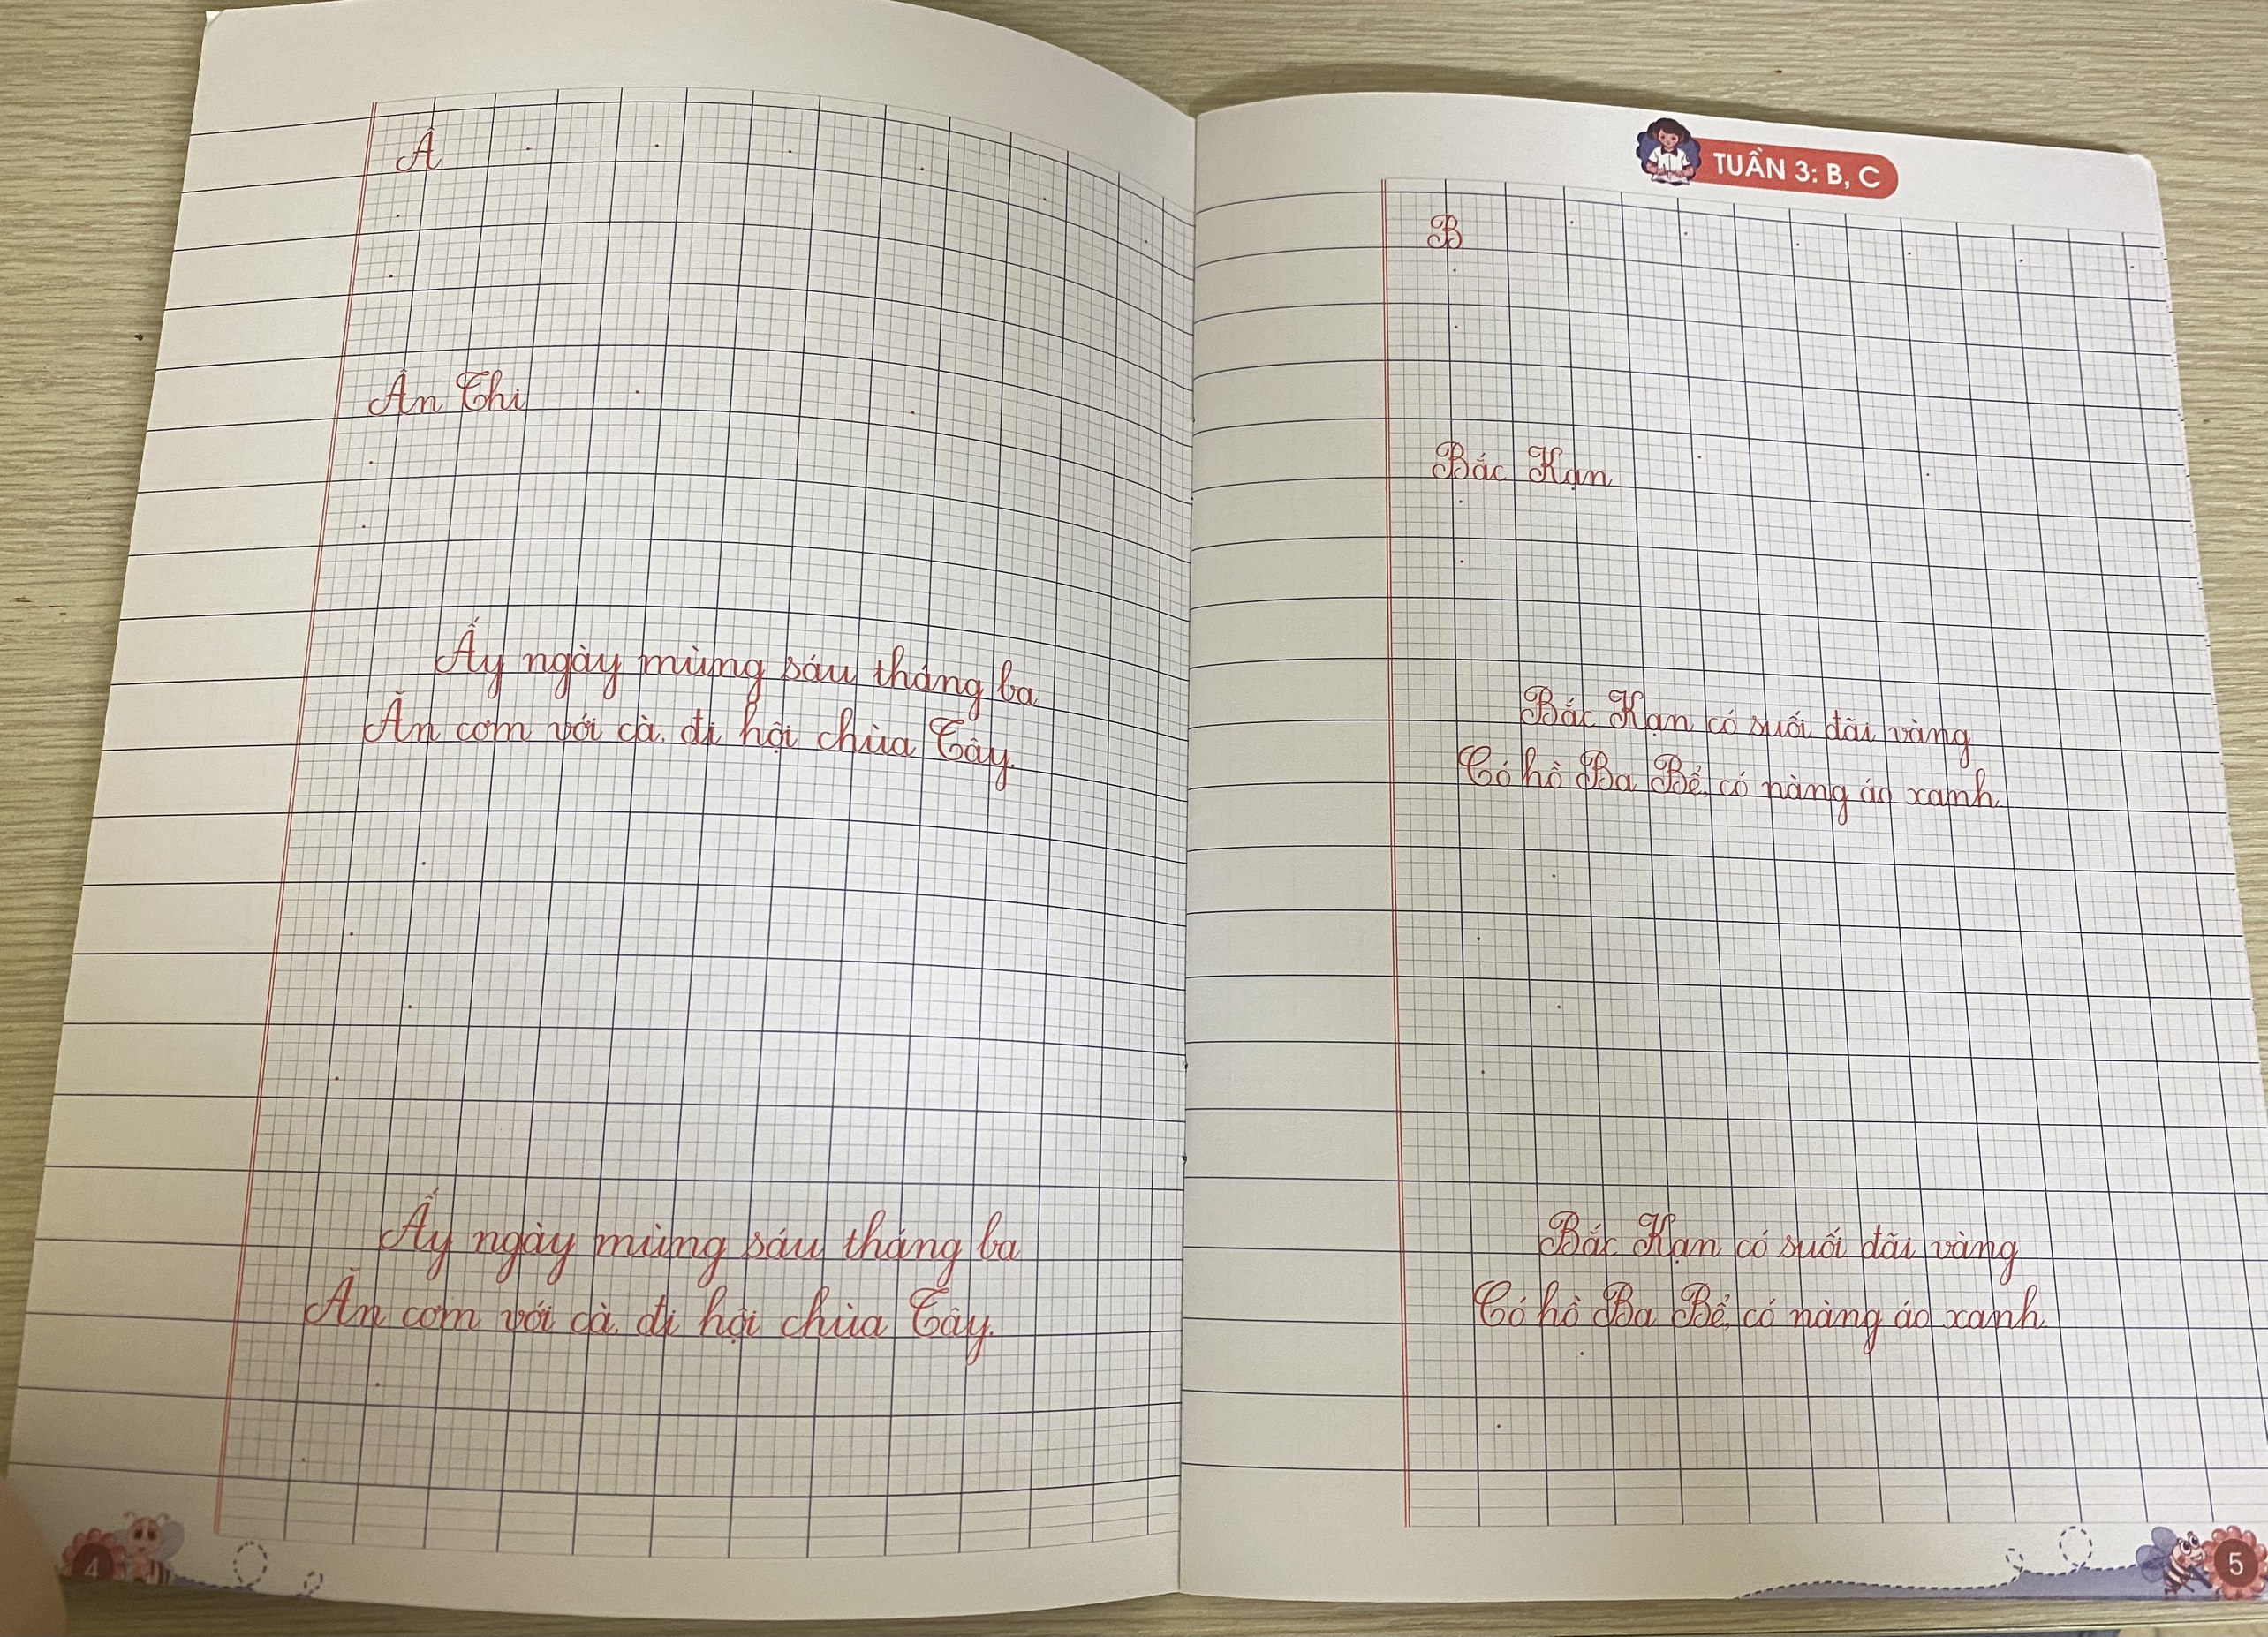 Â
Ân Thi
Ấy ngày mùng sáu tháng ba
Ăn cơm với cà, đi hội chùa Tây.
Ấy ngày mùng sáu tháng ba
Ăn cơm với cà, đi hội chùa Tây.
4
TUẦN 3: B, C
B
Bắc Kạn
Bắc Kạn có suối đãi vàng
Có hồ Ba Bể, có nàng áo xanh.
Bắc Kạn có suối đãi vàng
Có hồ Ba Bể, có nàng áo xanh.
5